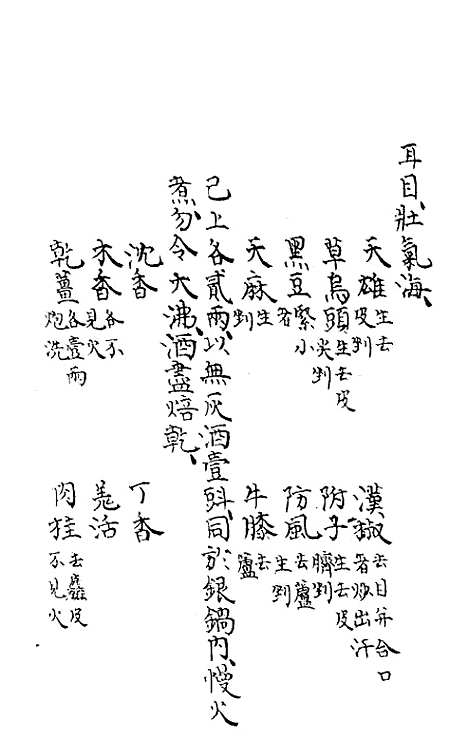 耳目、壯氣海、
天雄生去皮剉　漢椒去目并合口者炒出汗
草烏頭生去皮尖剉　附子生去皮臍剉
黑豆緊小者　防風去蘆生剉
天麻生剉　牛膝去蘆
已上各貳兩、以無灰酒壹㪷、同於銀鍋內、慢火
煮、勿令大沸、酒盡焙乾、
沈香　丁香
木香各不見火　羗活
乾薑炮洗各壹兩　肉桂去麤皮不見火